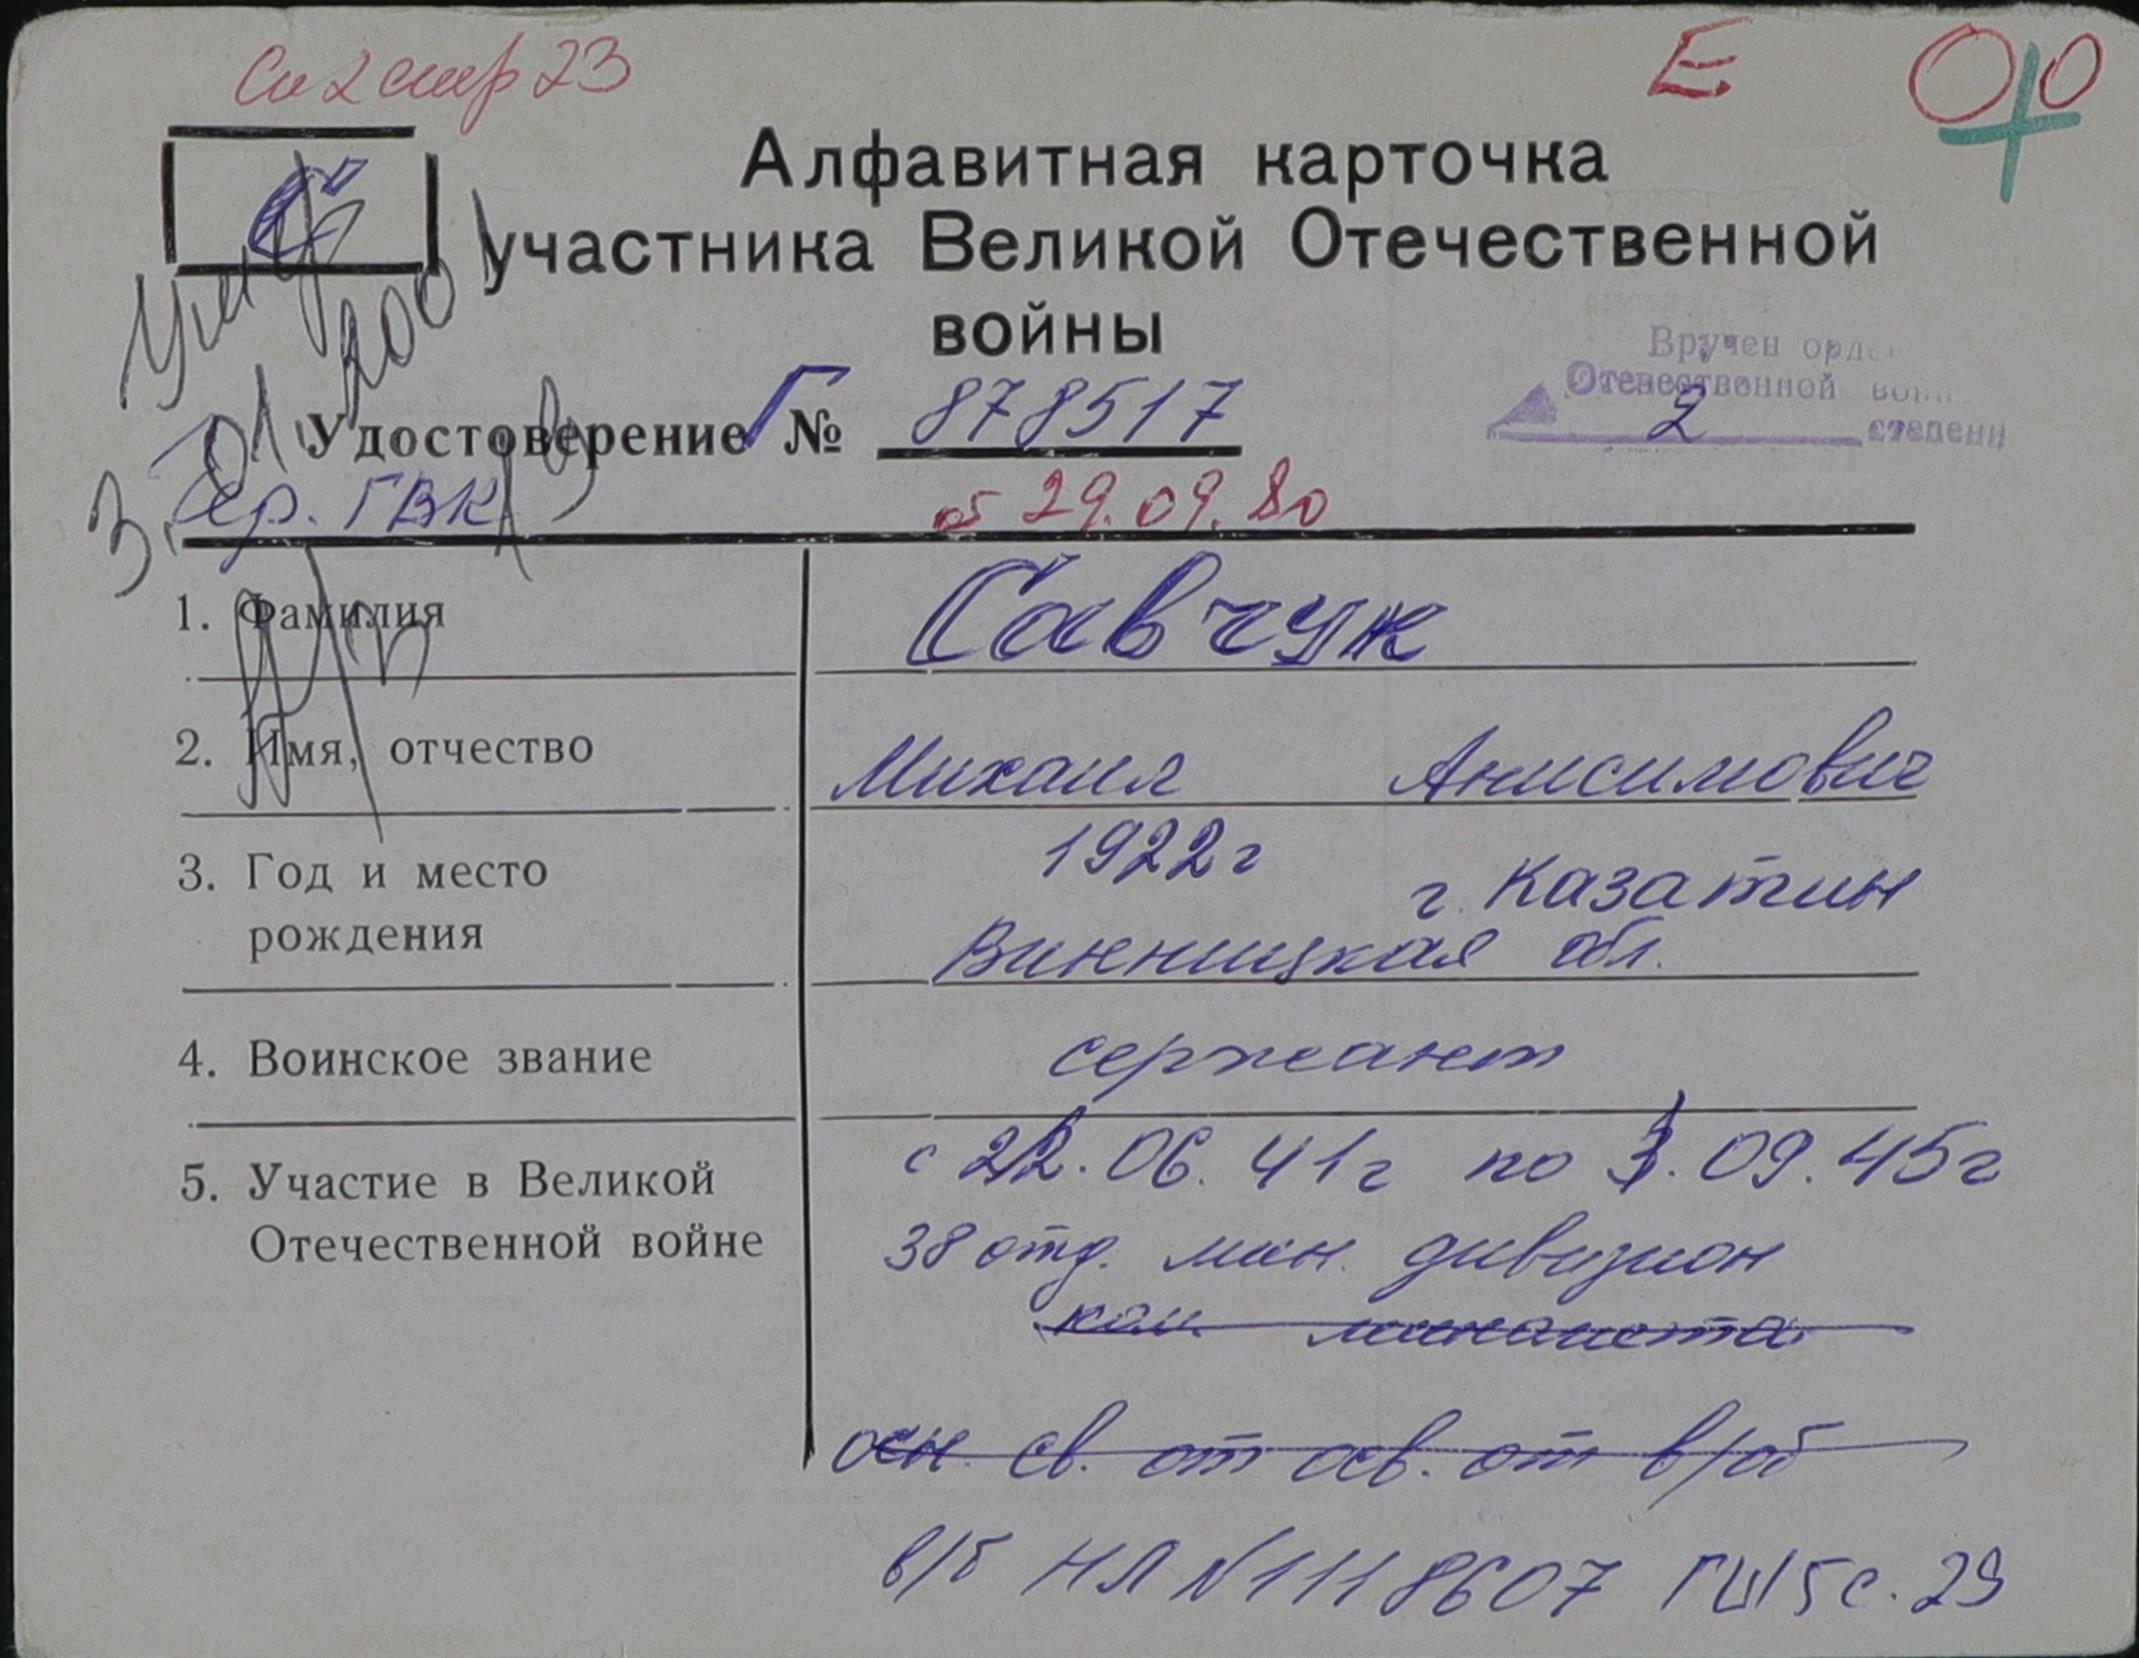 Сп 2 стр 23
Е
Алфавитная карточка
участника Великой Отечественной
войны
Вручен орде
Отечественной вой
2 степени
Удостоверение Г № 878517
Умер
3.01.2001
сер. ГВК
от 29.09.80
1. Фамилия Савчук
2. Имя, отчество Михаил Анисимович
3. Год и место рождения 1922 г г. Казатин
Винницкая обл.
4. Воинское звание сержант
5. Участие в Великой Отечественной войне с 22.06.41г по 3.09.45г
38 отд. мин. дивизион
ком. миномета
осн. св. от осв. от в/об
в/б НЛ N 1118607 ГШ 5 с. 29